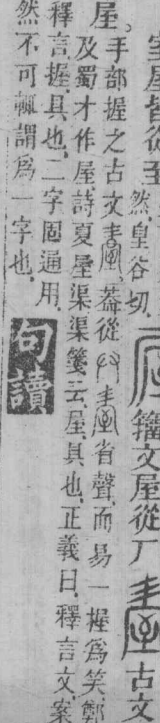 室屋皆從至 然皇谷切 籒文屋從厂 古文
屋。手部握之古文葢從省聲而易一握爲笑鄭
及蜀才作屋詩夏屋渠渠箋云屋具也正義曰釋言文案
釋言握具也二字固通用
然不可輒謂爲一字也
句讀